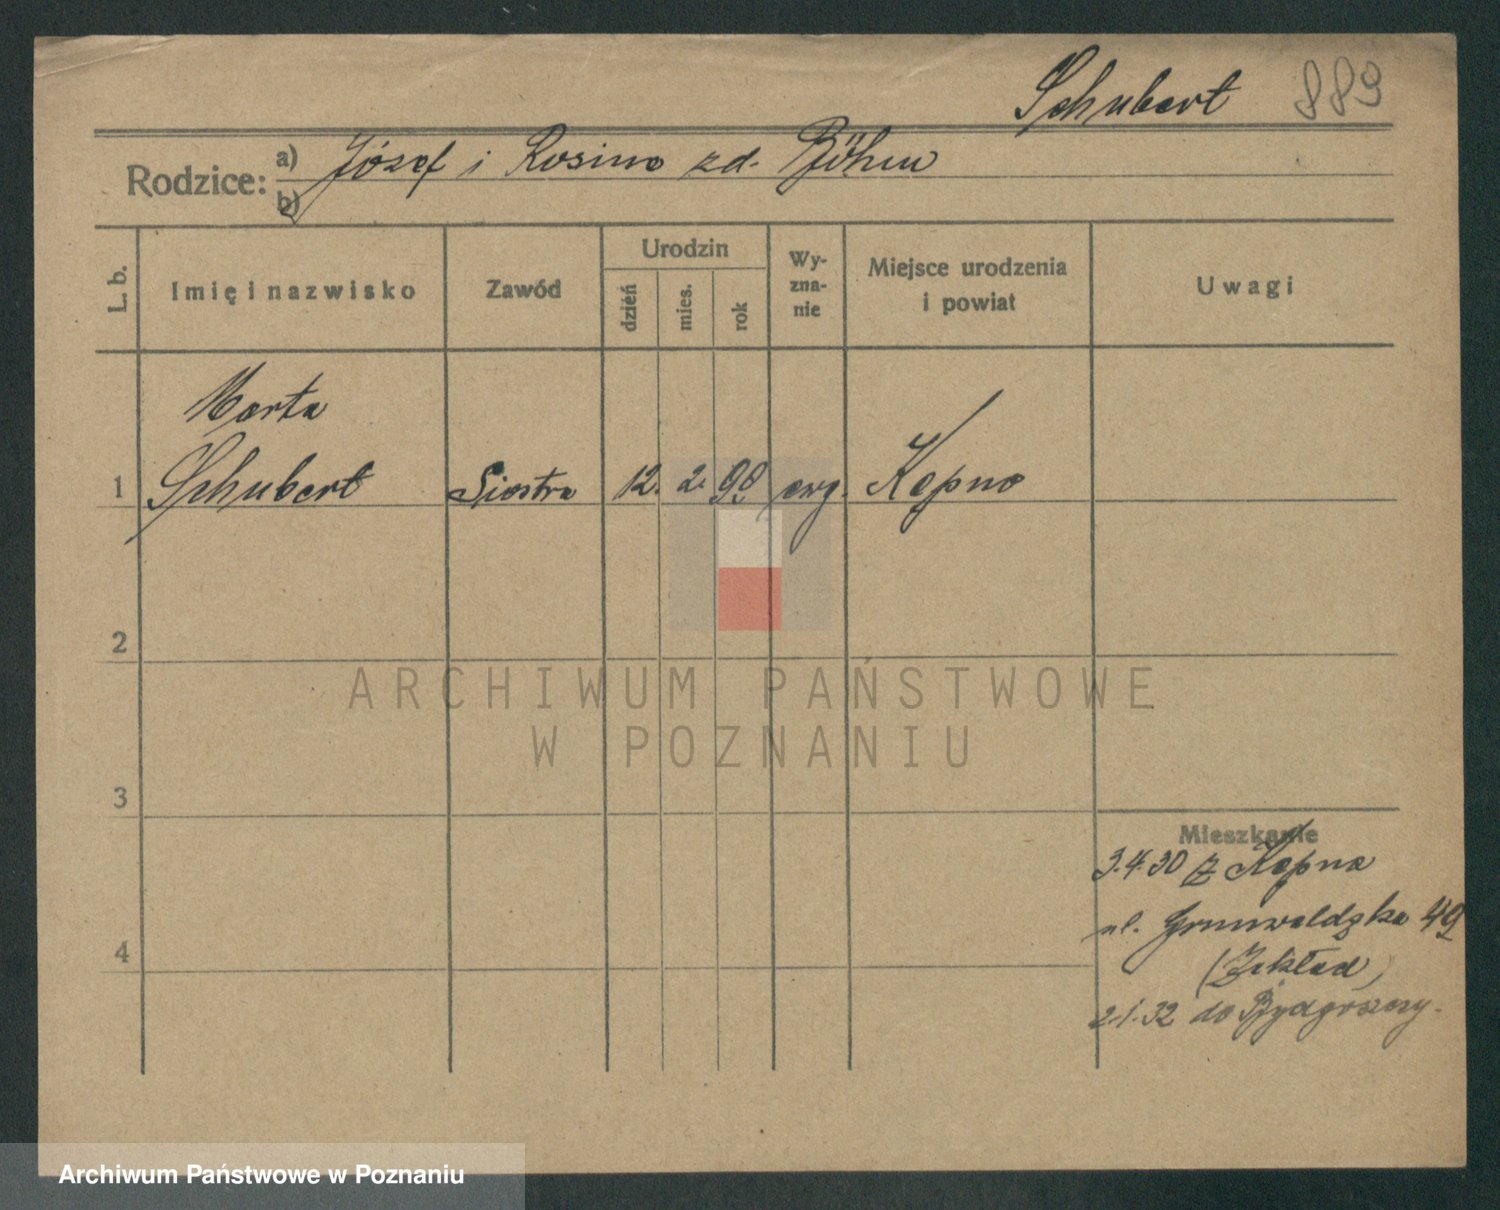 Schubert 889
Rodzice: a) Józef i Rosina zd. Böhm
b)
L. b. Imię i nazwisko Zawód Urodzin dzień mies. rok Wy-zna-nie Miejsce urodzenia i powiat Uwagi
Marta
1 Schubert Siostra 12. 2. 98 ewg. Kępno
2
ARCHIWUM PAŃSTWOWE
W POZNANIU
3
Mieszkanie
3.4.30 z Kępna
ul. Grunwaldzka 49
4
(Zakład)
2.1.32 do Bydgoszczy.
Archiwum Państwowe w Poznaniu